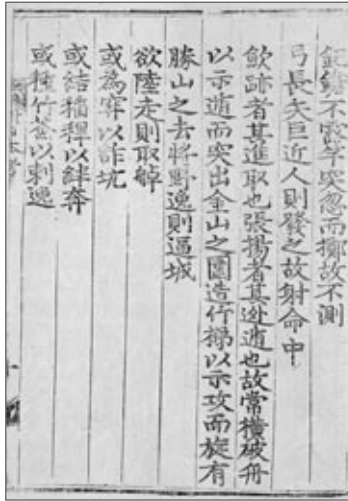 不露竿突忽而擲故不測
弓長矢巨近人則發之故射命中
歛跡者其進取也張揚者其逃遁也故常橫破舟
以示遁而突出金山之圍造竹梯以示攻而旋有
勝山之去將野逸則逼城
欲陸走則取棹
或為穽以詐坑
或結稻稈以絆奔
或種竹簽以刺逸
日本考